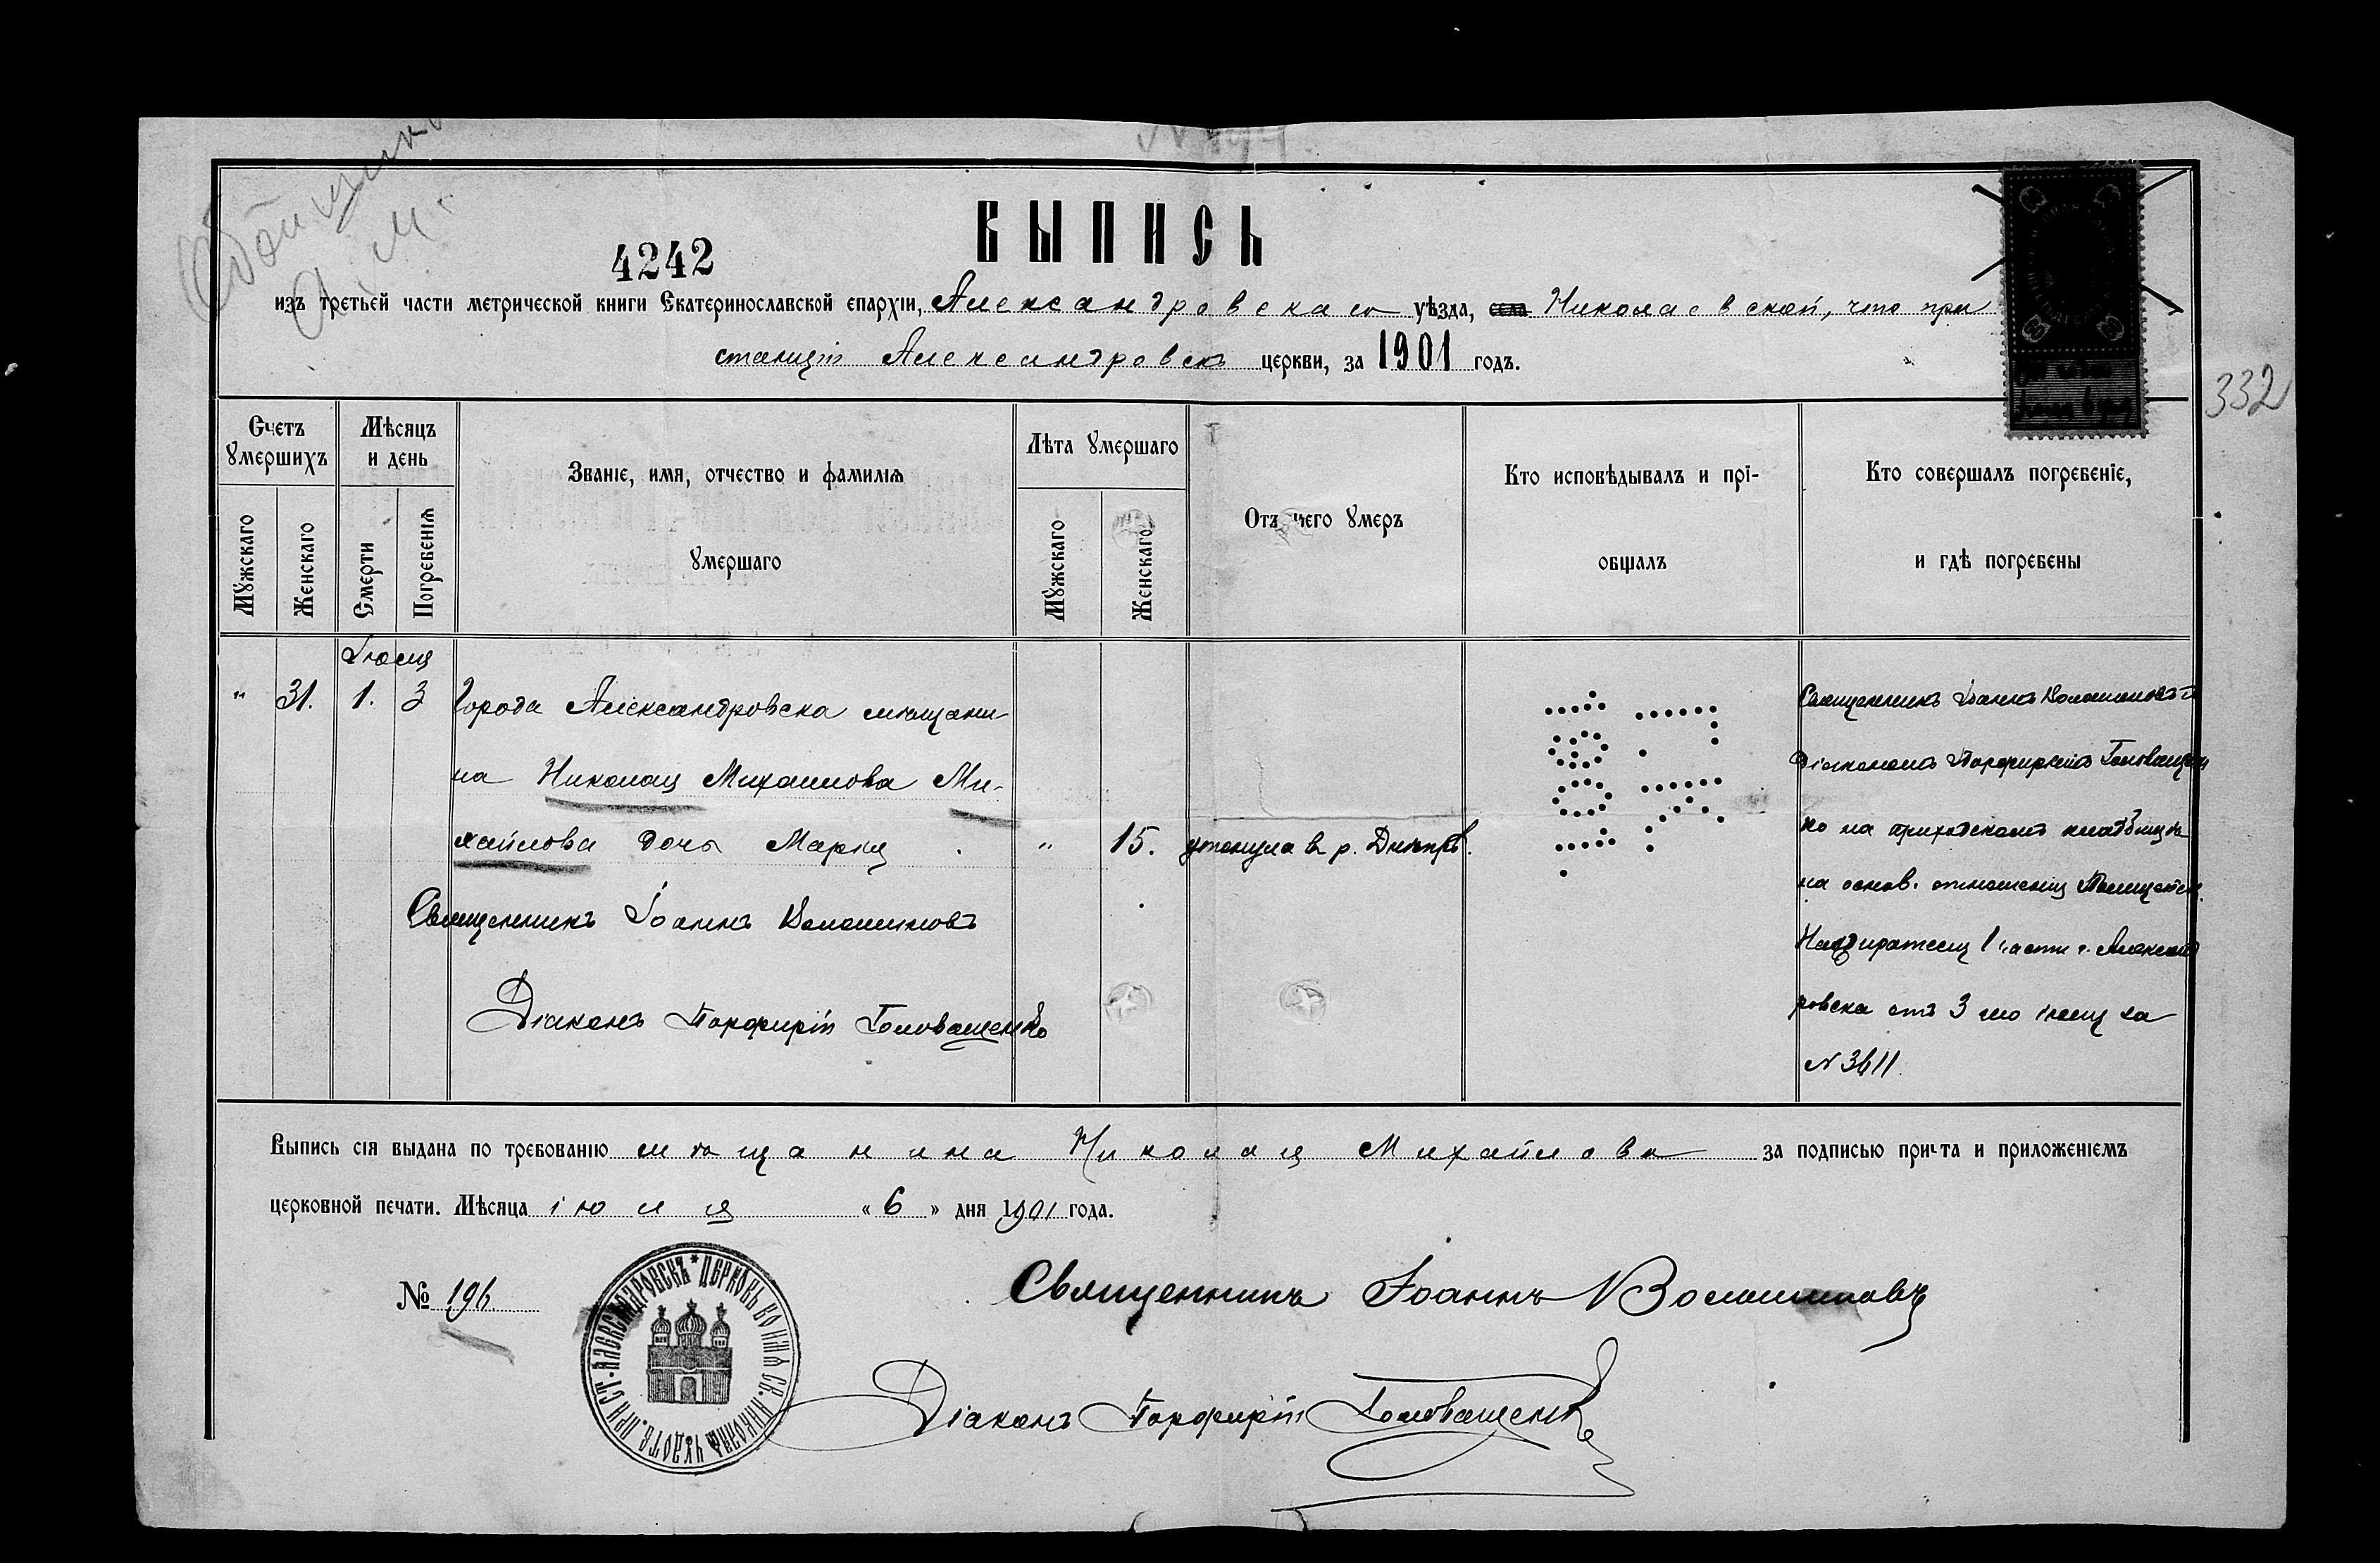 4242
ВЫПИСЬ
изъ третьей части метрической книги Екатеринославской епархіи, Александровскаго уѣзда, села Николаевской, что при
станціи Александровскъ церкви, за 1901 годъ.
332
Счетъ умершихъ
Мужскаго
Женскаго
Мѣсяцъ и день
Смерти
Погребенія
Званіе, имя, отчество и фамилія
умершаго
Лѣта умершаго
Мужскаго
Женскаго
Отъ чего умеръ
Кто исповѣдывалъ и прі-
общалъ
Кто совершалъ погребеніе,
и гдѣ погребены
Іюля
" 31. 1. 3
Города Александровска мѣщани-
на Николая Михайлова Ми-
хайлова дочь Марія
" 15. утонула въ р. Днѣпрѣ.
Священникъ Іоаннъ Волошиновъ
Діаконъ Порфирій Головащенко
Священникъ Іоаннъ Волошиновъ й
діакономъ Порфиріемъ Головащен
ко на приходскомъ кладбищѣ
на основ. отношенія Полицейск.
Надзирателя 1 части г. Александ
ровска отъ 3 го іюля за
№ 3611.
Выпись сія выдана по требованію мѣщанина Николая Михайлова за подписью причта и приложеніемъ
церковной печати. Мѣсяца іюля « 6 » дня 1901 года.
№ 196.
ЦЕРКОВЬ ВО ИМЯ СВ. НИКОЛАЯ ЧУДОТВ. ПРИ СТ. АЛЕКСАНДРОВСКЪ
Священникъ Іоаннъ Волошиновъ
Діаконъ Порфирій Головащенко